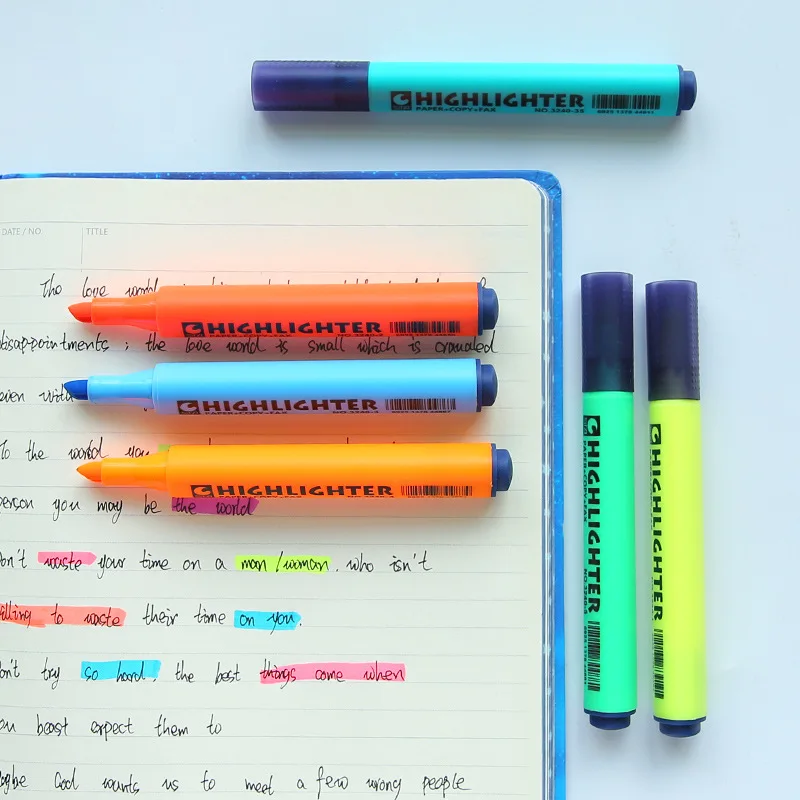 HIGHLIGHTER
PAPER+COPY+FAX NO.3240-35
DATE / NO. TITLE
The love world
HIGHLIGHTER
disappointments ; the love world is small which is crowded
HIGHLIGHTER
PAPER+COPY+FAX
even
To the world you
HIGHLIGHTER
person you may be the world
Don't waste your time on a man / woman, who isn't
willing to waste their time on you.
Don't try so hard, the best things come when
you beast expect them to
Maybe God wants us to meet a few wrong people
HIGHLIGHTER
PAPER+COPY+FAX
HIGHLIGHTER
PAPER+COPY+FAX